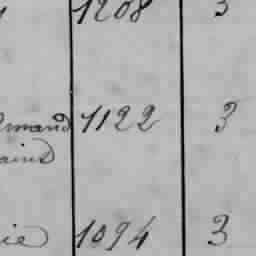 1208 3
mand 1122 3
ains
ie 1094 3